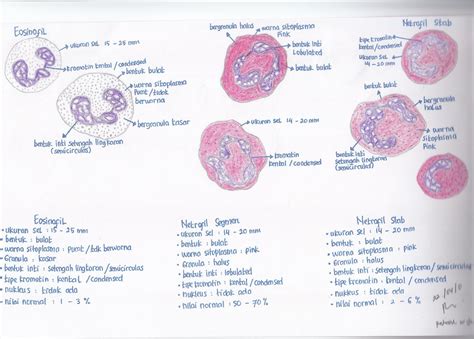 Eosinofil
ukuran sel 15 - 25 mm
kromatin kental / condensed
bentuk bulat
warna sitoplasma
pucat / tidak
berwarna
bergranula kasar
bentuk inti setengah lingkaran
(semicirculus)
bergranula halus
warna sitoplasma
Pink
bentuk inti
lobulated
bentuk bulat
ukuran sel 14 - 20 mm
kromatin
kental / condensed
Netrofil Stab
tipe kromatin
kental / condensed
ukuran sel
14 - 20 mm
bentuk bulat
bergranula
halus
warna
sitoplasma
Pink
bentuk inti
setengah lingkaran
(semicirculus)
Eosinofil
• ukuran sel : 15 - 25 mm
• bentuk : bulat
• warna sitoplasma : pucat / tdk berwarna
• Granula : kasar
• bentuk inti : setengah lingkaran / semicirculus
• tipe kromatin : kental / condensed
• nucleus : tidak ada
• nilai normal : 1 - 3 %
Netrofil Segmen
• ukuran sel : 14 - 20 mm
• bentuk : bulat
• warna sitoplasma : pink
• Granula : halus
• bentuk inti : lobulated
• tipe kromatin : kental / condensed
• nucleus : tidak ada
• nilai normal : 50 - 70 %
Netrofil Stab
• ukuran sel : 14 - 20 mm
• bentuk : bulat
• warna sitoplasma : Pink
• Granula : halus
• bentuk inti : setengah lingkaran / semicirculus
• tipe kromatin : kental / condensed
• nucleus : tidak ada
• nilai normal : 2 - 6 %